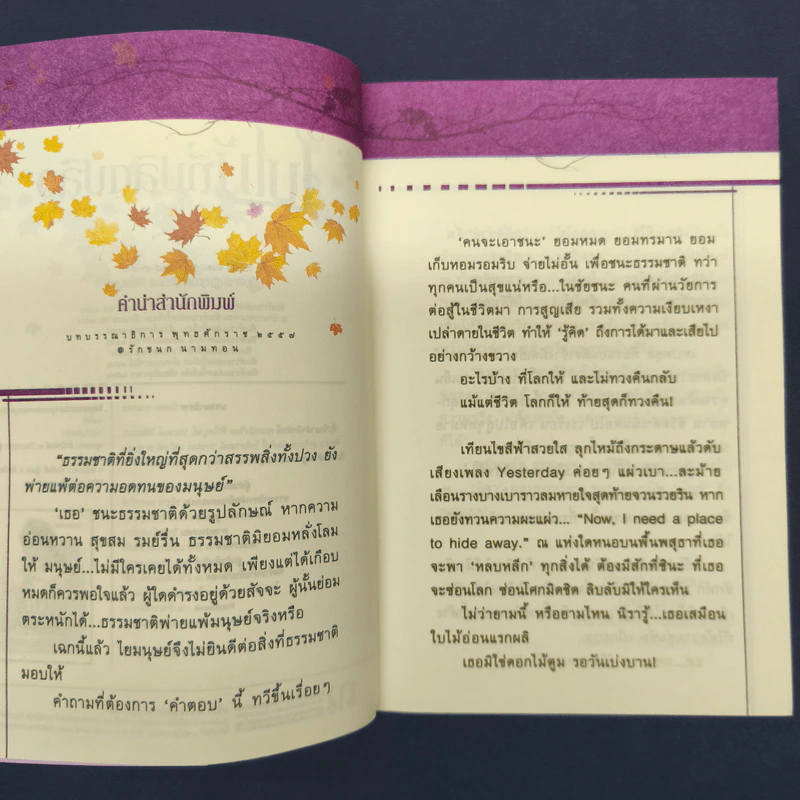 คำนำสำนักพิมพ์
บทบรรณาธิการ พุทธศักราช ๒๕๕๗
๏ รักชนก นามทอน
“ธรรมชาติที่ยิ่งใหญ่ที่สุดกว่าสรรพสิ่งทั้งปวง ยัง
พ่ายแพ้ต่อความอดทนของมนุษย์”
‘เธอ’ ชนะธรรมชาติด้วยรูปลักษณ์ หากความ
อ่อนหวาน สุขสม รมย์รื่น ธรรมชาติมิยอมหลั่งโลม
ให้ มนุษย์...ไม่มีใครเคยได้ทั้งหมด เพียงแต่ได้เกือบ
หมดก็ควรพอใจแล้ว ผู้ใดดำรงอยู่ด้วยสัจจะ ผู้นั้นย่อม
ตระหนักได้...ธรรมชาติพ่ายแพ้มนุษย์จริงหรือ
เฉกนี้แล้ว ไยมนุษย์จึงไม่ยินดีต่อสิ่งที่ธรรมชาติ
มอบให้
คำถามที่ต้องการ ‘คำตอบ’ นี้ ทวีขึ้นเรื่อยๆ
‘คนจะเอาชนะ’ ยอมหมด ยอมทรมาน ยอม
เก็บหอมรอมริบ จ่ายไม่อั้น เพื่อชนะธรรมชาติ ทว่า
ทุกคนเป็นสุขแน่หรือ...ในชัยชนะ คนที่ผ่านวัยการ
ต่อสู้ในชีวิตมา การสูญเสีย รวมทั้งความเงียบเหงา
เปล่าดายในชีวิต ทำให้ ‘รู้คิด’ ถึงการได้มาและเสียไป
อย่างกว้างขวาง
อะไรบ้าง ที่โลกให้ และไม่ทวงคืนกลับ
แม้แต่ชีวิต โลกก็ให้ ท้ายสุดก็ทวงคืน!
เทียนไขสีฟ้าสวยใส ลุกไหม้ถึงกระดาษแล้วดับ
เสียงเพลง Yesterday ค่อยๆ แผ่วเบา...ละม้าย
เลือนรางบางเบาราวลมหายใจสุดท้ายจวนรวยริน หาก
เธอยังทวนความผะแผ่ว... “Now, I need a place
to hide away.” ณ แห่งใดหนอบนพื้นพสุธาที่เธอ
จะพา ‘หลบหลีก’ ทุกสิ่งได้ ต้องมีสักที่ซินะ ที่เธอ
จะซ่อนโลก ซ่อนโศกมิดชิด ลิบลับมิให้ใครเห็น
ไม่ว่ายามนี้ หรือยามไหน นิรารู้...เธอเสมือน
ใบไม้อ่อนแรกผลิ
เธอมิใช่ดอกไม้ตูม รอวันเบ่งบาน!